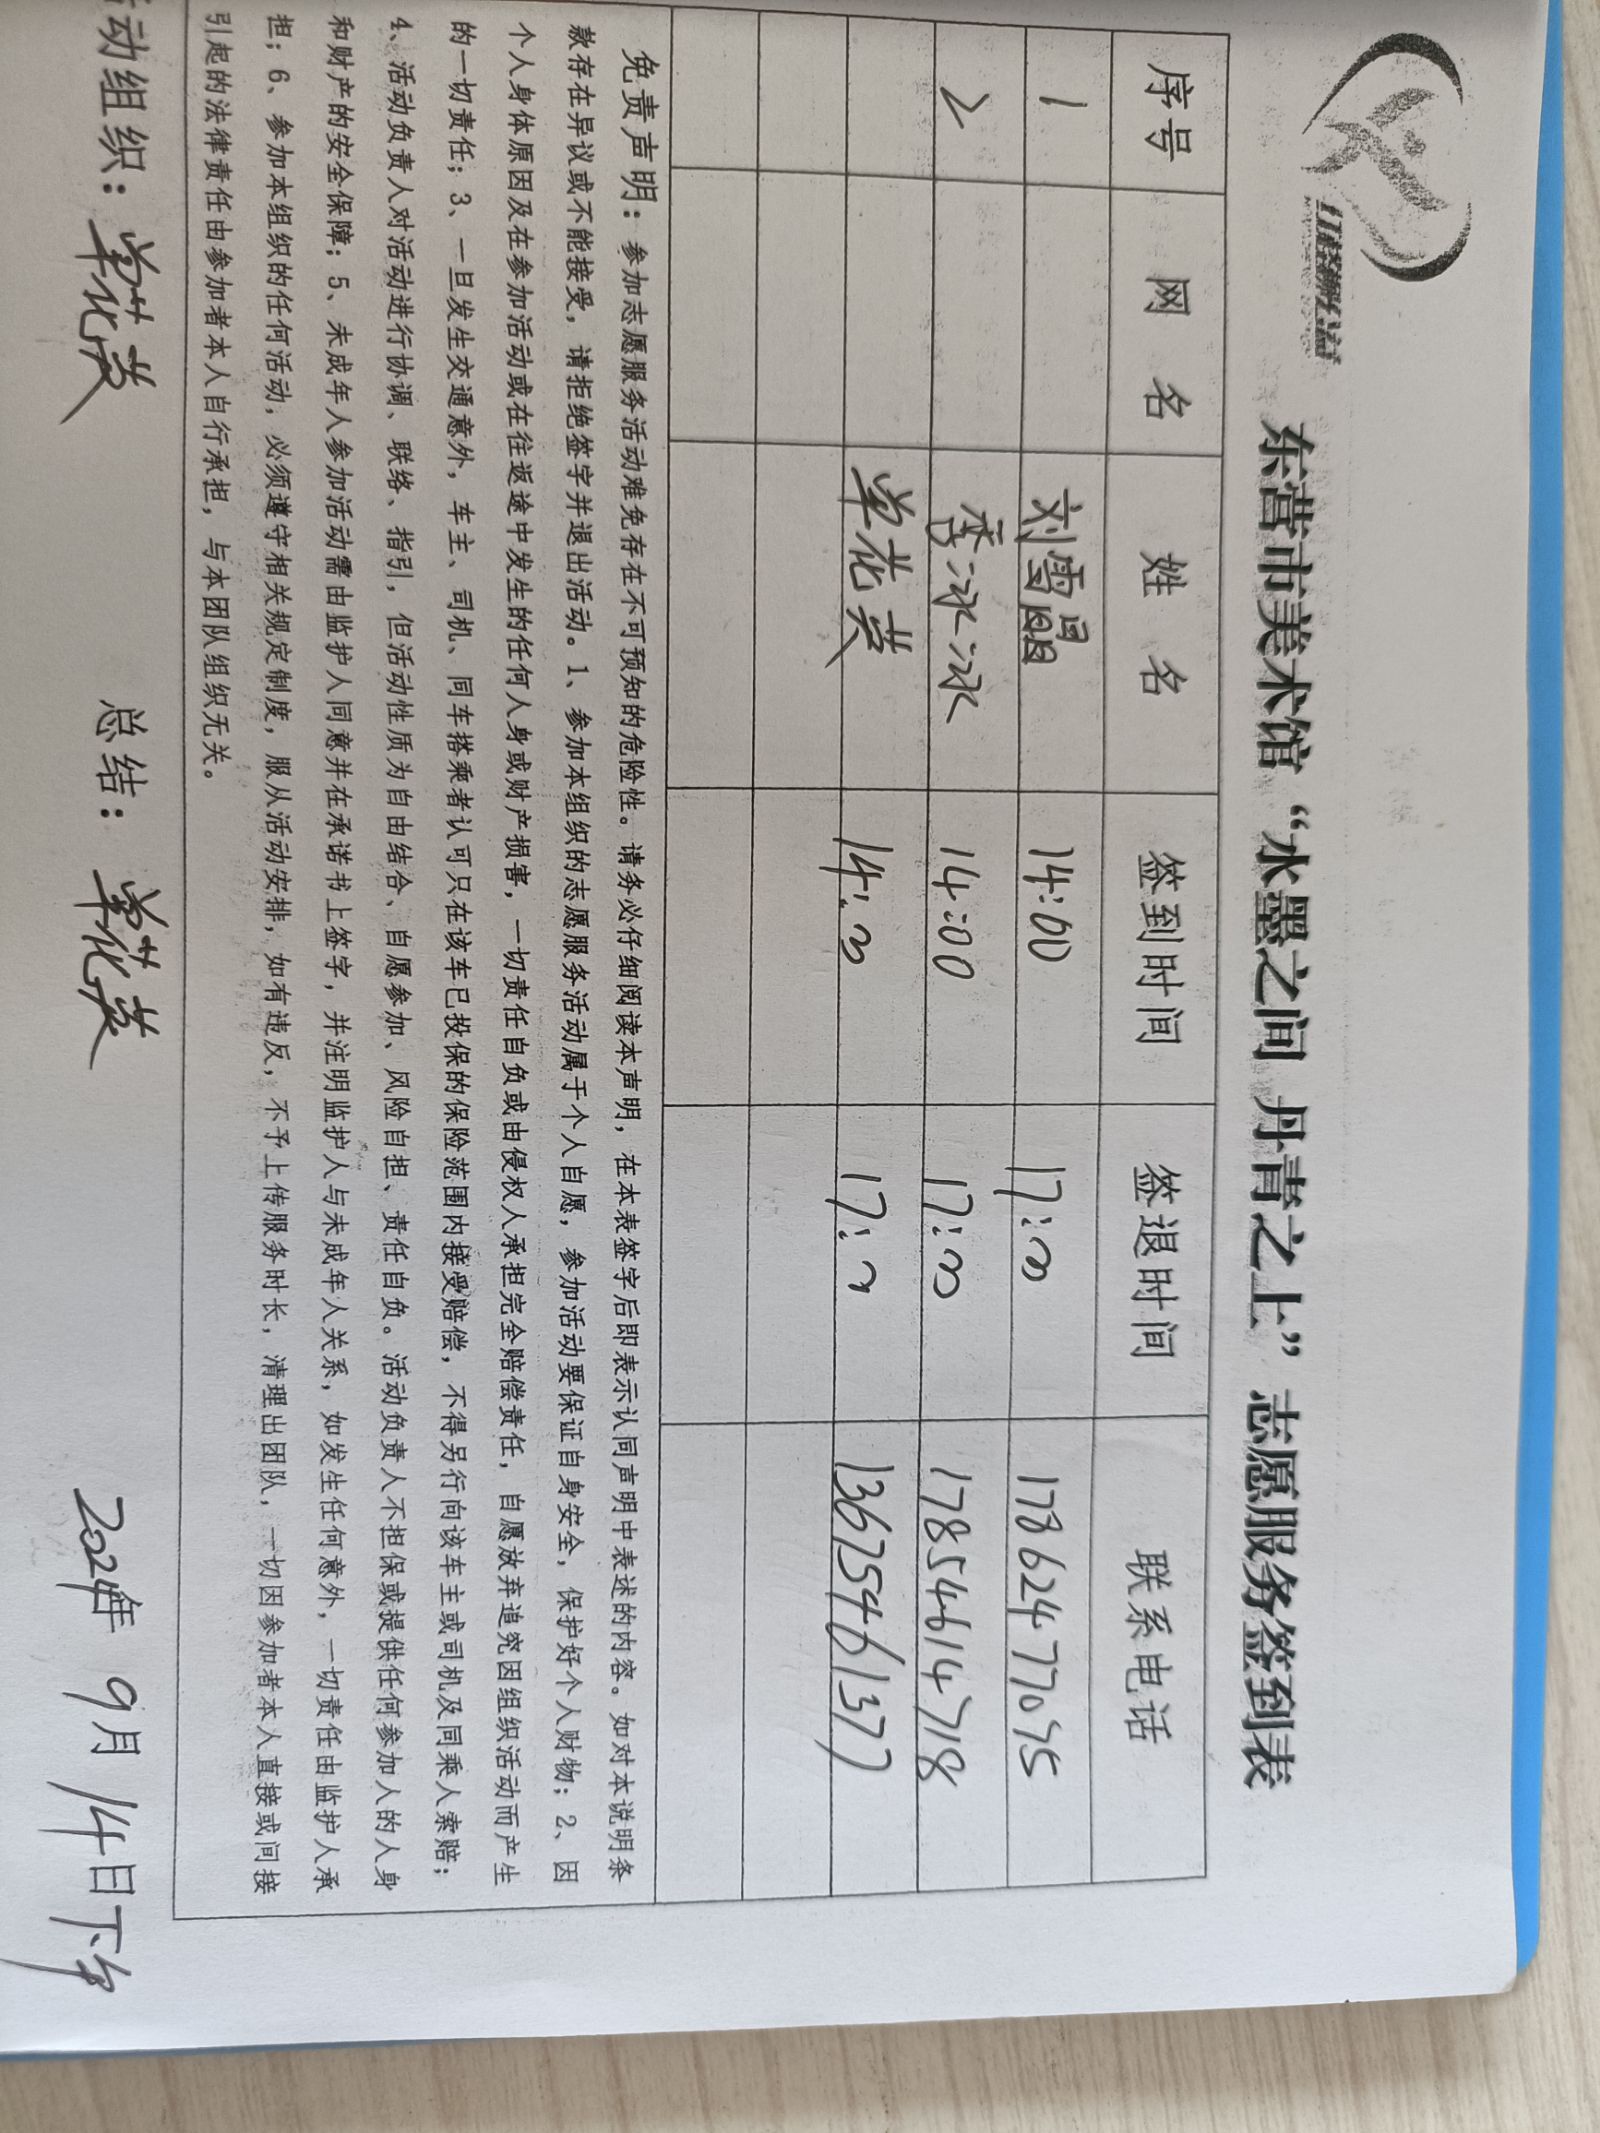 东营市美术馆“水墨之间 丹青之上”志愿服务签到表
序号 网 名 姓 名 签到时间 签退时间 联系电话
1 刘雪晶 14:00 17:00 17862477075
2 李冰冰 14:00 17:00 17854614718
单花英 14:00 17:00
免责声明：参加志愿服务活动难免存在不可预知的危险性。请务必仔细阅读本声明，在本表签字后即表示认同声明中表述的内容。如对本说明条
款存在异议或不能接受，请拒绝签字并退出活动。1、参加本组织的志愿服务活动属于个人自愿，参加活动要保证自身安全，保护好个人财物；2、因
个人身体原因及在参加活动或在往返途中发生的任何人身或财产损害，一切责任自负或由侵权人承担完全赔偿责任，自愿放弃追究因组织活动而产生
的一切责任；3、一旦发生交通意外，车主、司机、同车搭乘者认可只在该车已投保的保险范围内接受赔偿，不得另行向该车主或司机及同乘人索赔；
4、活动负责人对活动进行协调、联络、指引，但活动性质为自由结合、自愿参加、风险自担、责任自负。活动负责人不担保或提供任何参加人的人身
和财产的安全保障；5、未成年人参加活动需由监护人同意并在承诺书上签字，并注明监护人与未成年人关系，如发生任何意外，一切责任由监护人承
担；6、参加本组织的任何活动，必须遵守相关规定制度，服从活动安排，如有违反，不予上传服务时长，清理出团队，一切因参加者本人直接或间接
引起的法律责任由参加者本人自行承担，与本团队组织无关。
动组织：单花英 总结：单花英 2024年 9月 14日下午